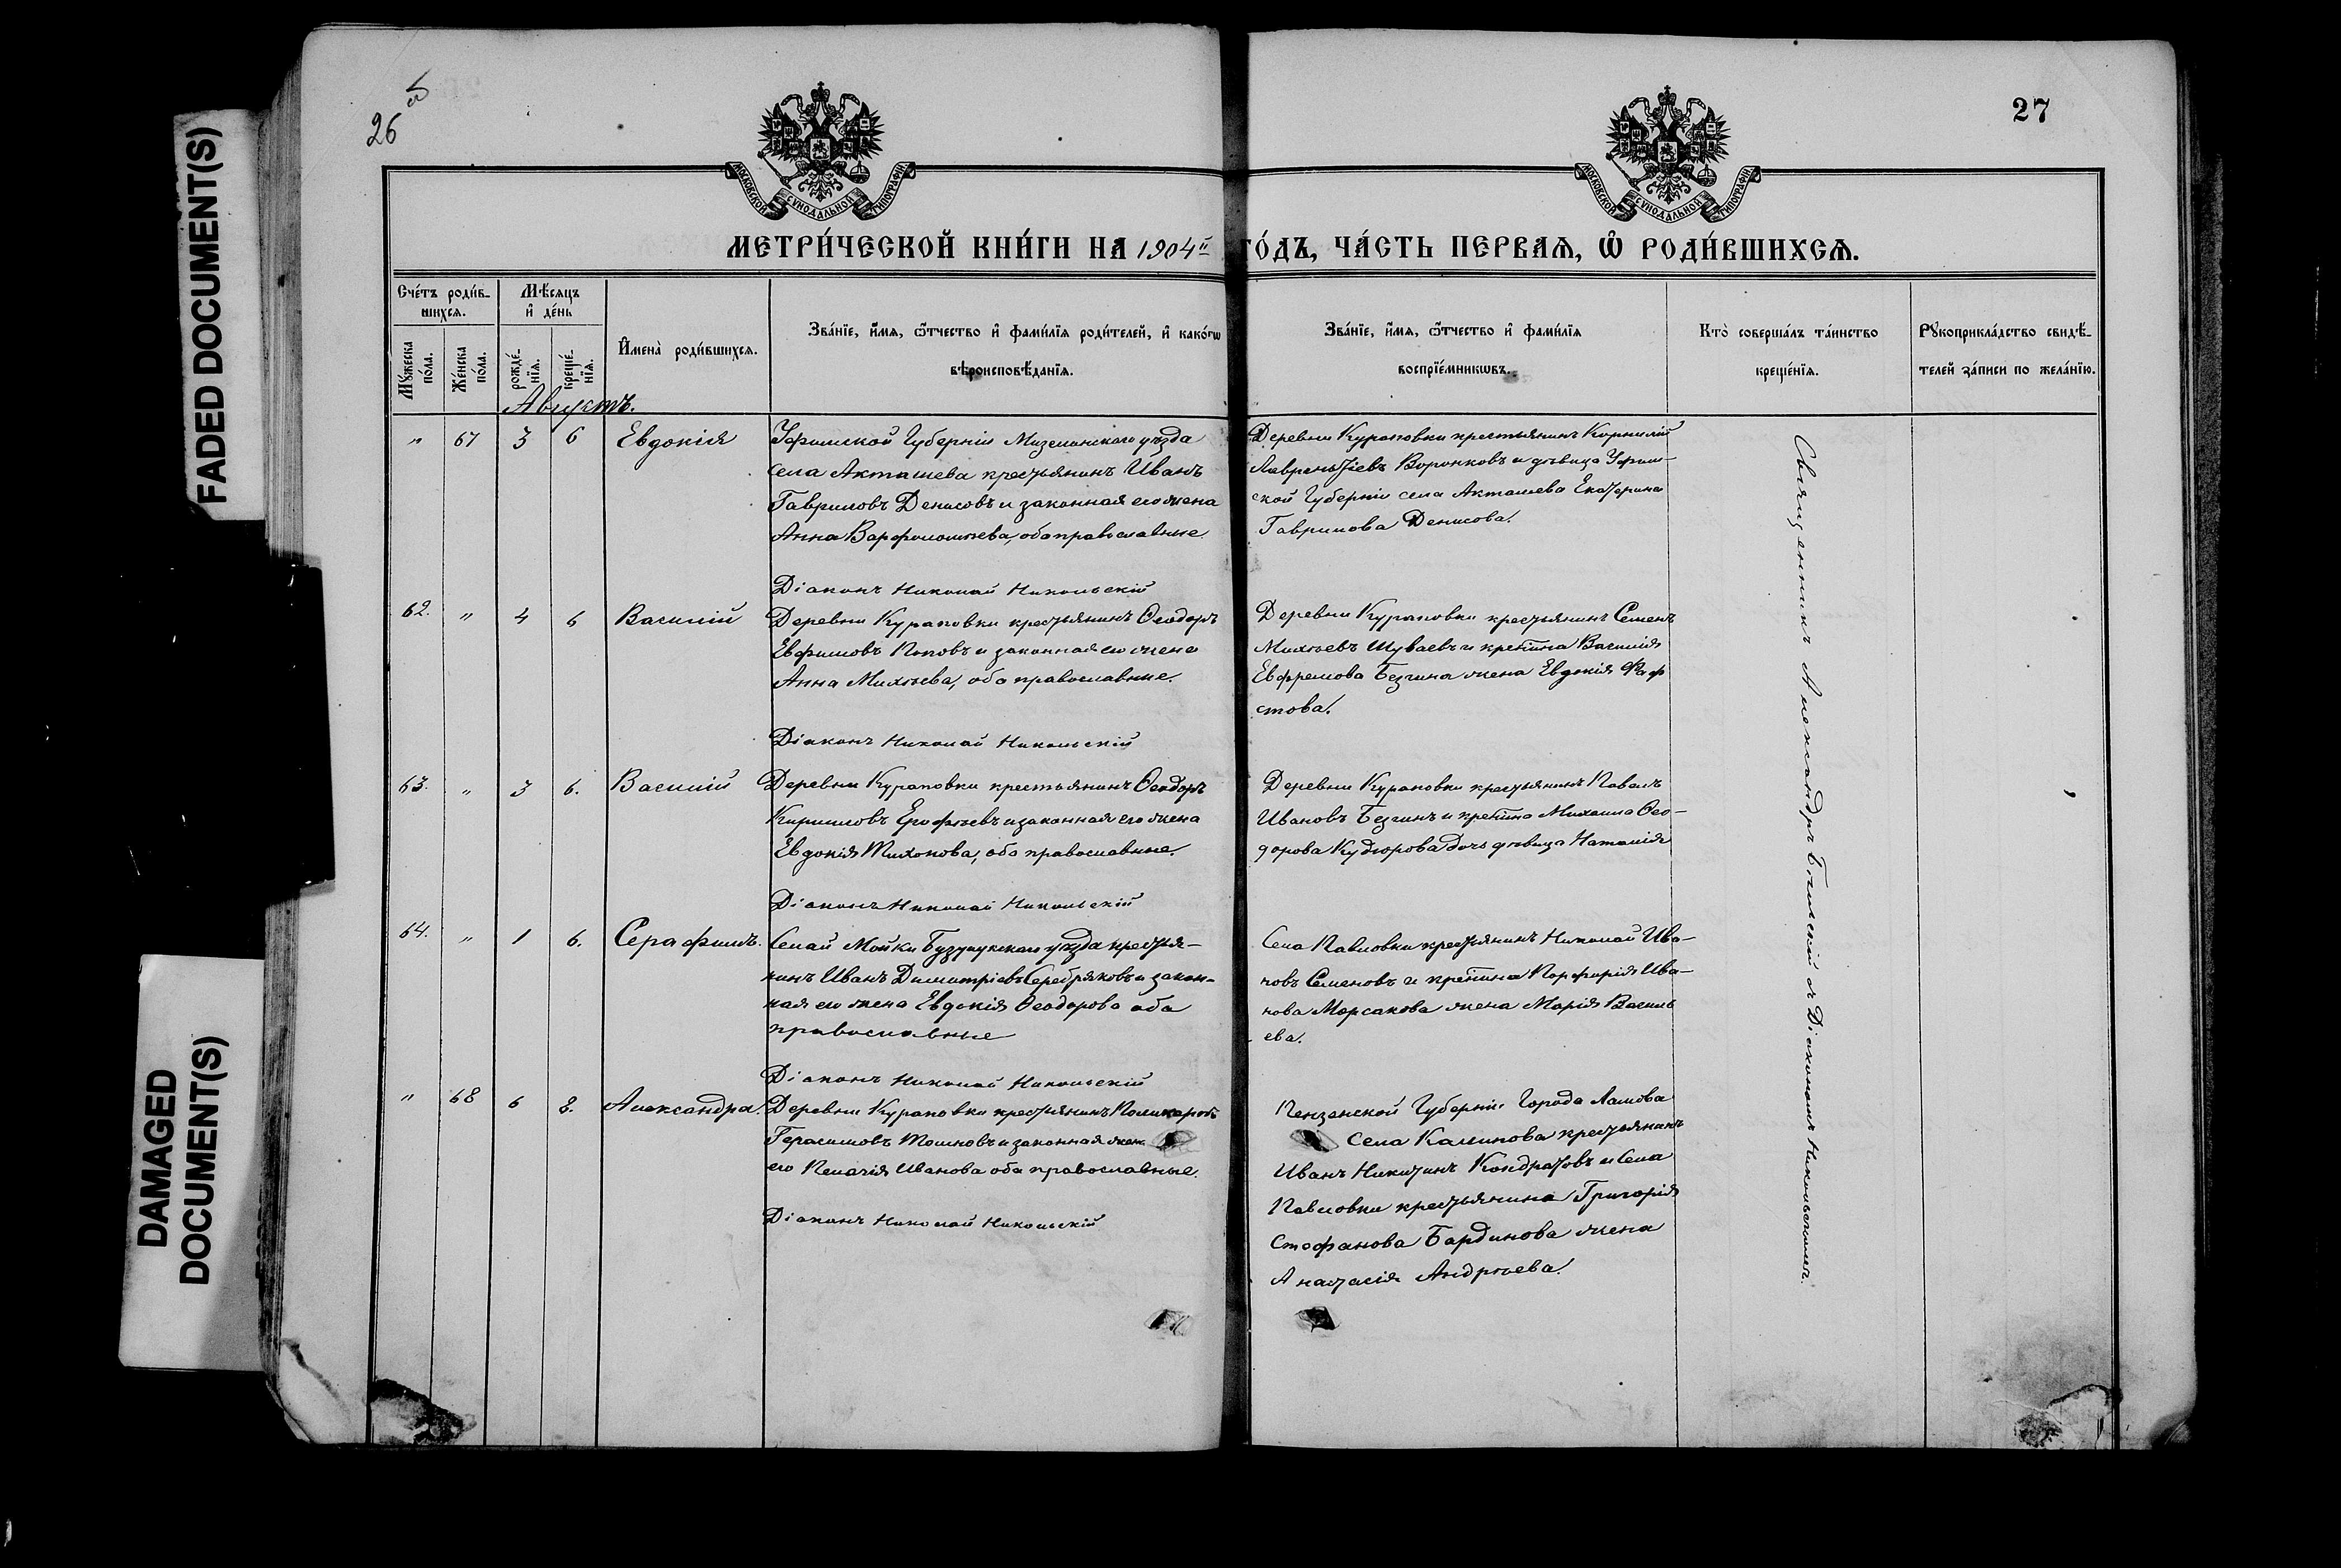 FADED DOCUMENT(S)
DAMAGED
DOCUMENT(S)
26
27
МОСКОВСКОЙ СѴНОДАЛЬНОЙ ТИПОГРАФІИ
МОСКОВСКОЙ СѴНОДАЛЬНОЙ ТИПОГРАФІИ
МЕТРИ́ЧЕСКОЙ КНИ́ГИ НА 1904й ГО́ДЪ, ЧА́СТЬ ПЕРВАѦ, Ѡ҆ РОДИ́ВШИХСѦ.
Сче́тъ роди́в-
шихсѧ.
Мѣ́сѧцъ
и҆ де́нь
Мꙋ́жеска
по́ла.
Же́нска
по́ла.
рожде́-
нїѧ.
креще́-
нїѧ.
И҆мена̀ роди́вшихсѧ.
Зва́нїе, и҆́мѧ, ѻ҆́тчество и҆ фами́лїѧ роди́телей, и҆ како́гѡ
вѣроисповѣ́данїѧ.
Зва́нїе, и҆́мѧ, ѻ҆́тчество и҆ фами́лїѧ
воспрїе́мникѡвъ.
Кто̀ соверша́лъ та́инство
креще́нїѧ.
Рꙋкоприкла́дство свидѣ́-
телей за́писи по жела́нїю.
Августъ.
" 67 3 6 Евдокія
Уфимской Губерніи Мизелинскаго уѣзда
села Акташева крестьянинъ Иванъ
Гавриловъ Денисовъ и законная его жена
Анна Варфоломѣева, оба православные
Діаконъ Николай Никольскій
Деревни Кураповки крестьянинъ Корнилій
Лаврентіевъ Воронковъ и дѣвица Уфим-
ской Губерніи села Акташева Екатерина
Гаврилова Денисова.
62. " 4 6 Василій
Деревни Кураповки крестьянинъ Ѳеодоръ
Евфимовъ Поповъ и законная его жена
Анна Михѣева, оба православные.
Діаконъ Николай Никольскій
Деревни Кураповки крестьянинъ Семенъ
Михѣевъ Шуваевъ и крестина Василія
Евфремова Безгина жена Евдокія Фаф
стова.
63. " 3 6. Василій
Деревни Кураповки крестьянинъ Ѳеодоръ
Кирилловъ Ерофѣевъ и законная его жена
Евдокія Тихонова, оба православные.
Діаконъ Николай Никольскій
Деревни Кураповки крестьянинъ Павелъ
Ивановъ Безгинъ и крестина Михаила Ѳео-
дорова Кудюрова дочь дѣвица Наталія
64. " 1 6. Серафимъ.
Селай Мойки Бузулукскаго уѣзда крестья-
нинъ Иванъ Димитріевъ Серебряковъ и закон-
ная его жена Евдокія Ѳеодорова оба
православные
Діаконъ Николай Никольскій
Села Павловки крестьянинъ Николай Ива-
новъ Семеновъ и крестина Порфирія Ива-
нова Морсакова жена Марія Василь
ева.
" 68 6 8. Александра.
Деревни Кураповки крестьянинъ Поликарпъ
Герасимовъ Тошновъ и законная жен
его Пелагія Иванова оба православные.
Діаконъ Николай Никольскій
Пензенской Губерніи Города Ламова
Села Калинова крестьянинъ
Иванъ Никитинъ Кондратовъ и Села
Павловки крестьянина Григорія
Стефанова Бардинова жена
Анастасія Андрѣева.
Священникъ Александръ съ Діакономъ Никольскимъ.